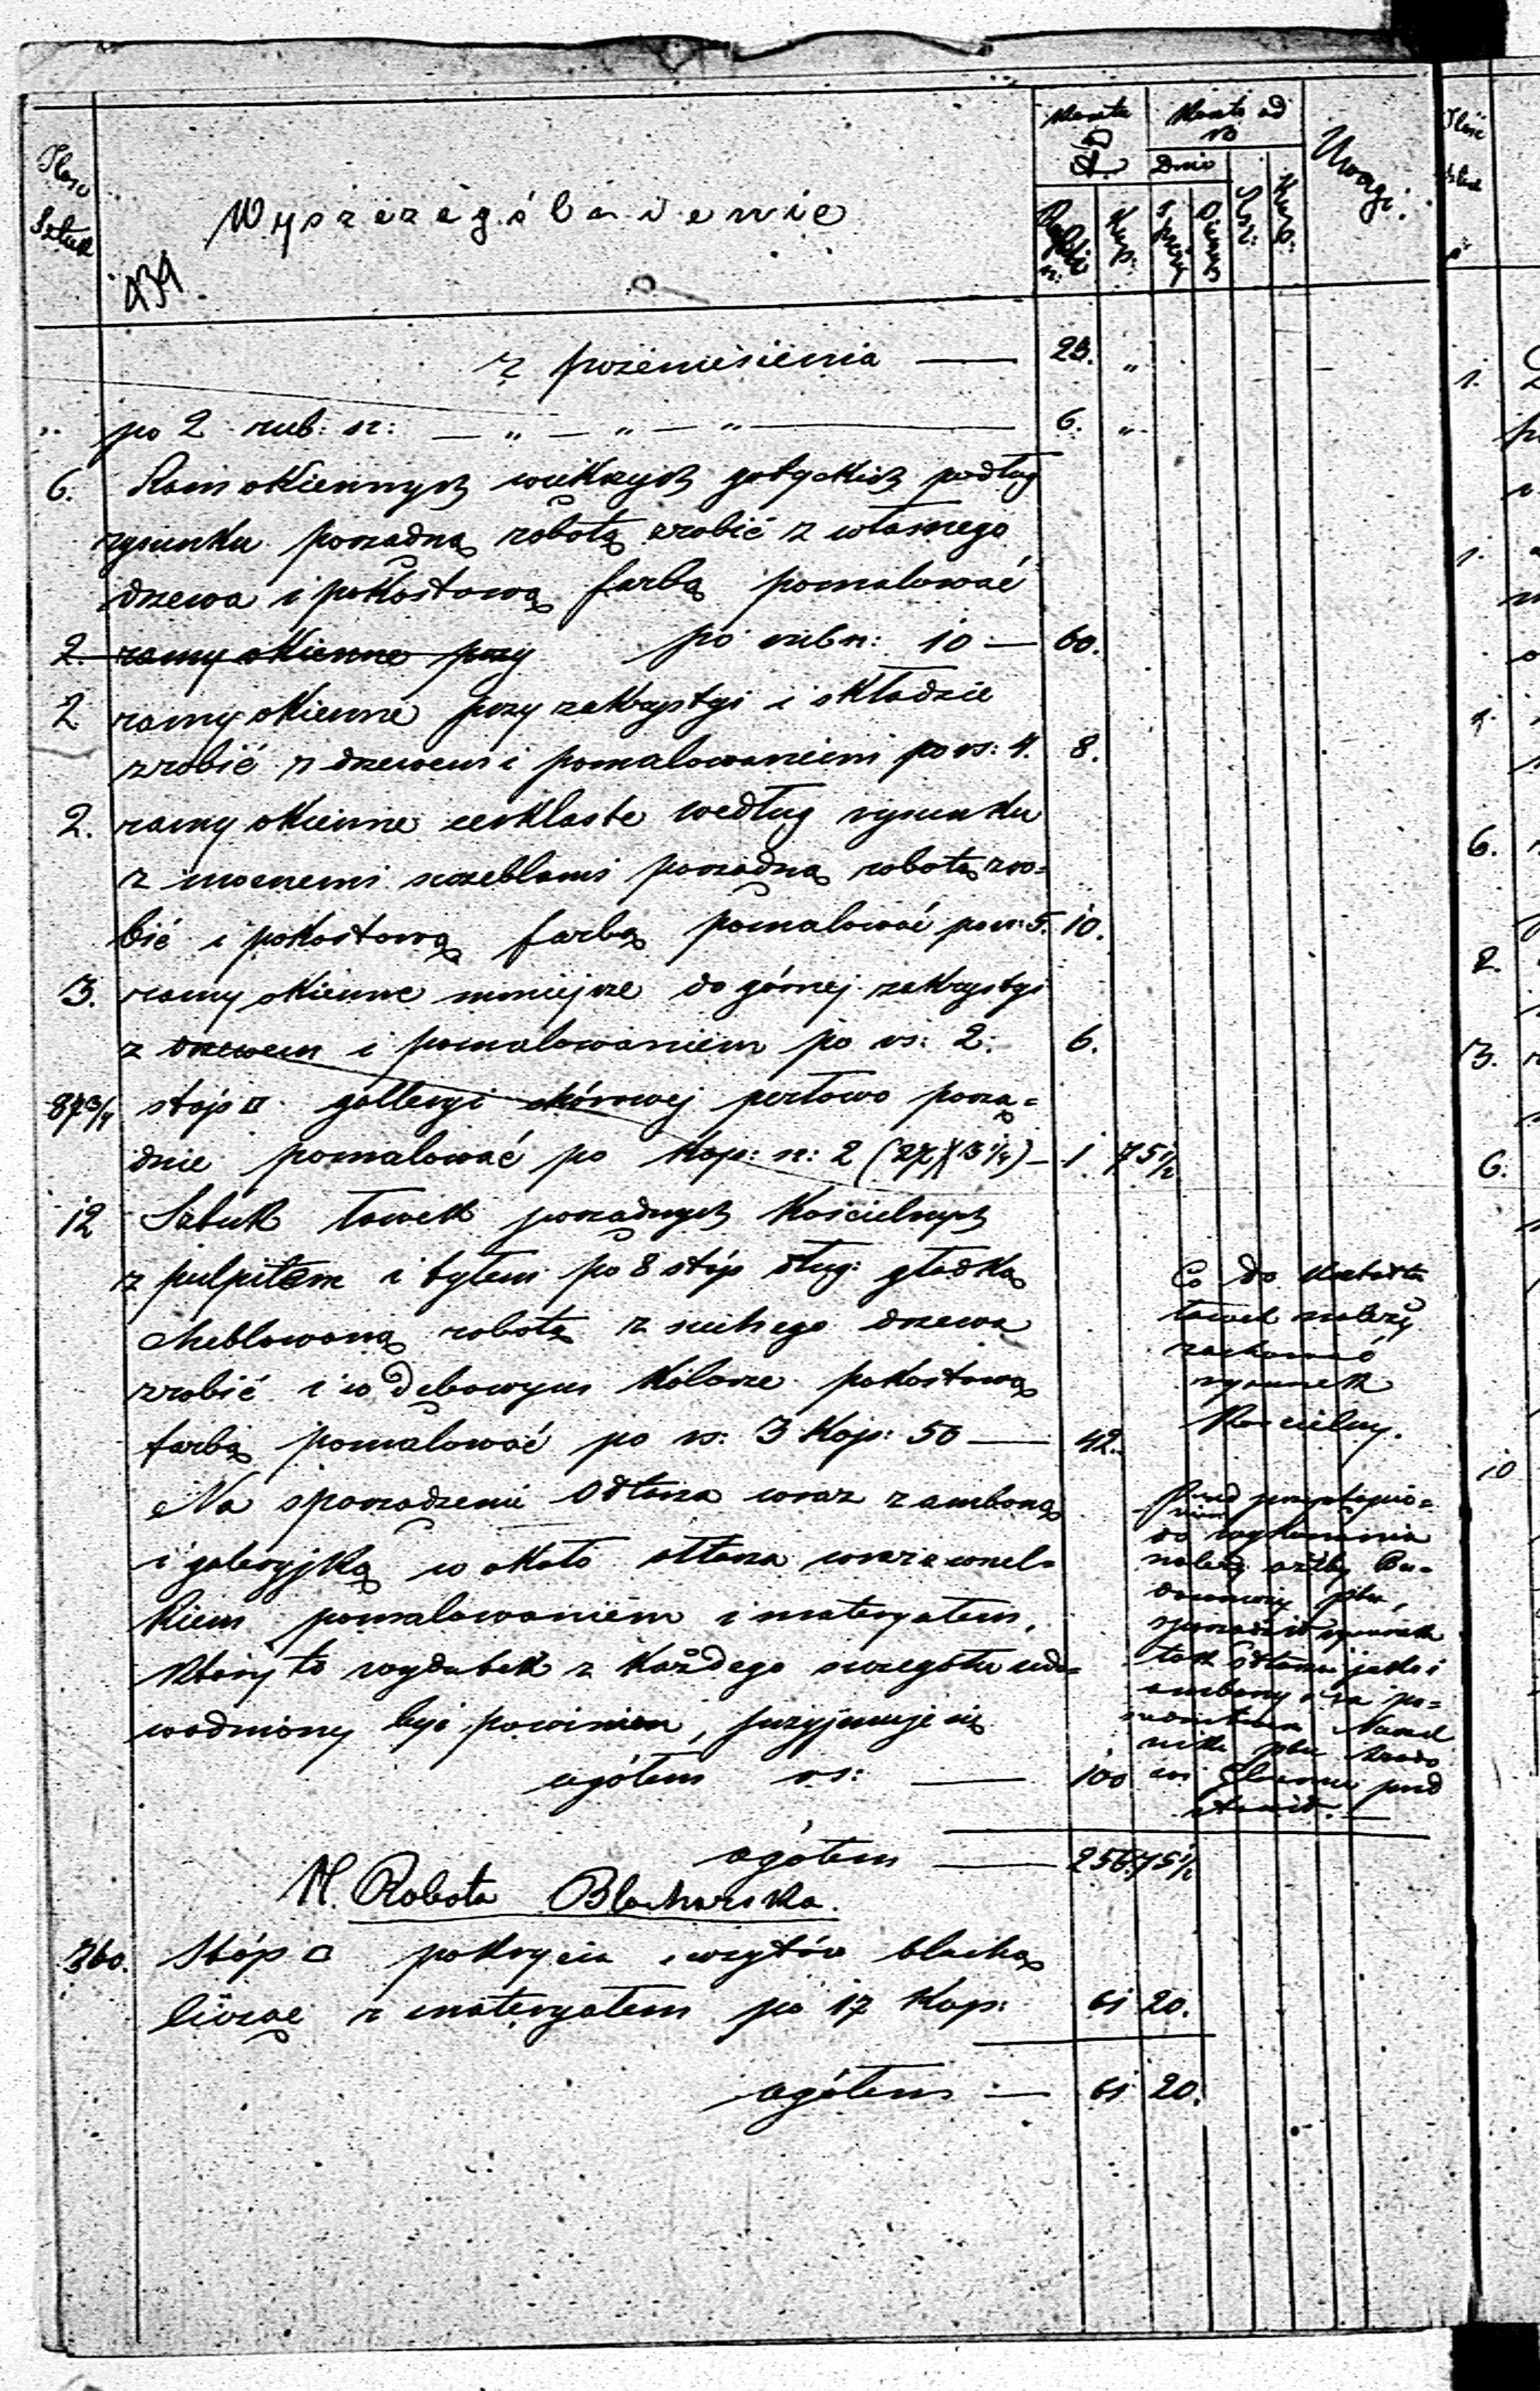 Ilość Sztuk
Wyszczególnienie
Koszta
Koszta od
Dnie
Kop:
Uwagi.
439
z przeniesienia — 23. „
po 2 rub: sr: — „ — „ — „ — 6. „
6. Ram okiennych wiekszych gotyckich podług
rysunku porządną robotą zrobić z własnego
drzewa i pokostową farbą pomalować
po rub sr: 10 — 60.
2. ramy okienne przy
2 ramy okienne przy zakrystyi i składzie
zrobić z drzewem i pomalowaniem po rs: 4. 8.
2. ramy okienne według rysunku
z mocnemi szczeblami porządną robotą zro=
bić i pokostową farbą pomalować po rs: 5. 10.
3. ramy okienne mniejsze do górnej zakrystyi
z drzewem i pomalowaniem po rs: 2. 6.
87 3/4 stop □ galleryi chórowej perłowo porzą=
dnie pomalować po kop: sr: 2 (27)(3 1/4) — 1 75 1/2
12 Sztuk ławek porządnych Kościelnych
z pulpitem i tyłem po 8 stóp dług: gładką
cheblowaną robotą z suchego drzewa
zrobić i w dębowym kolorze pokostową
farbą pomalować po rs: 3 kop: 50 — 42.
Co do kształtu
ławek należy
zachować
rysunek
Kościelny.
Na sporządzenie Ołtarza wraz z amboną
i galeryjką w około ołtarza wraz z wszel=
kiem pomalowaniem i materyałem,
który to wydatek z każdego szczegółu udo=
wodniony być powinien, przyjmuje się
ogółem rs: — 100
Przed przystąpie=
niem
do wykonania
należy
sporządzić rysunek
tak Ołtarza jako i
ambony i za po=
średnictwem Naczel
nika
przed
stawić.
ogółem — 256. 75 1/2
N. Robota Blacharska.
360. Stóp □ pokrycia szczytów blachą
licząc z materyałem po 17 Kop: 61 20.
ogółem — 61 20.